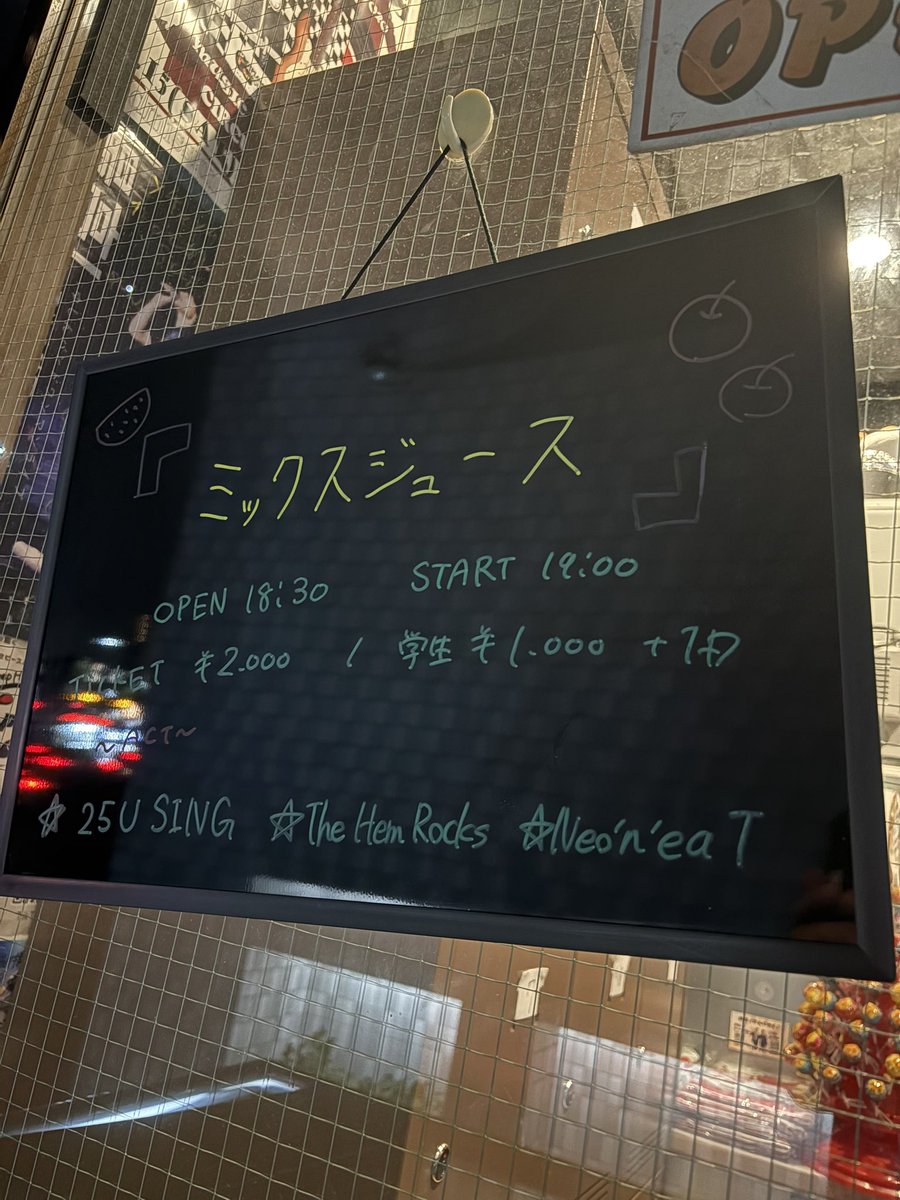 OP
ミックスジュース
OPEN 18:30 START 19:00
TICKET ¥2.000 / 学生 ¥1.000 +1D
~ACT~
☆25U SING ☆The Hem Rocks ☆Neo'n'ea T